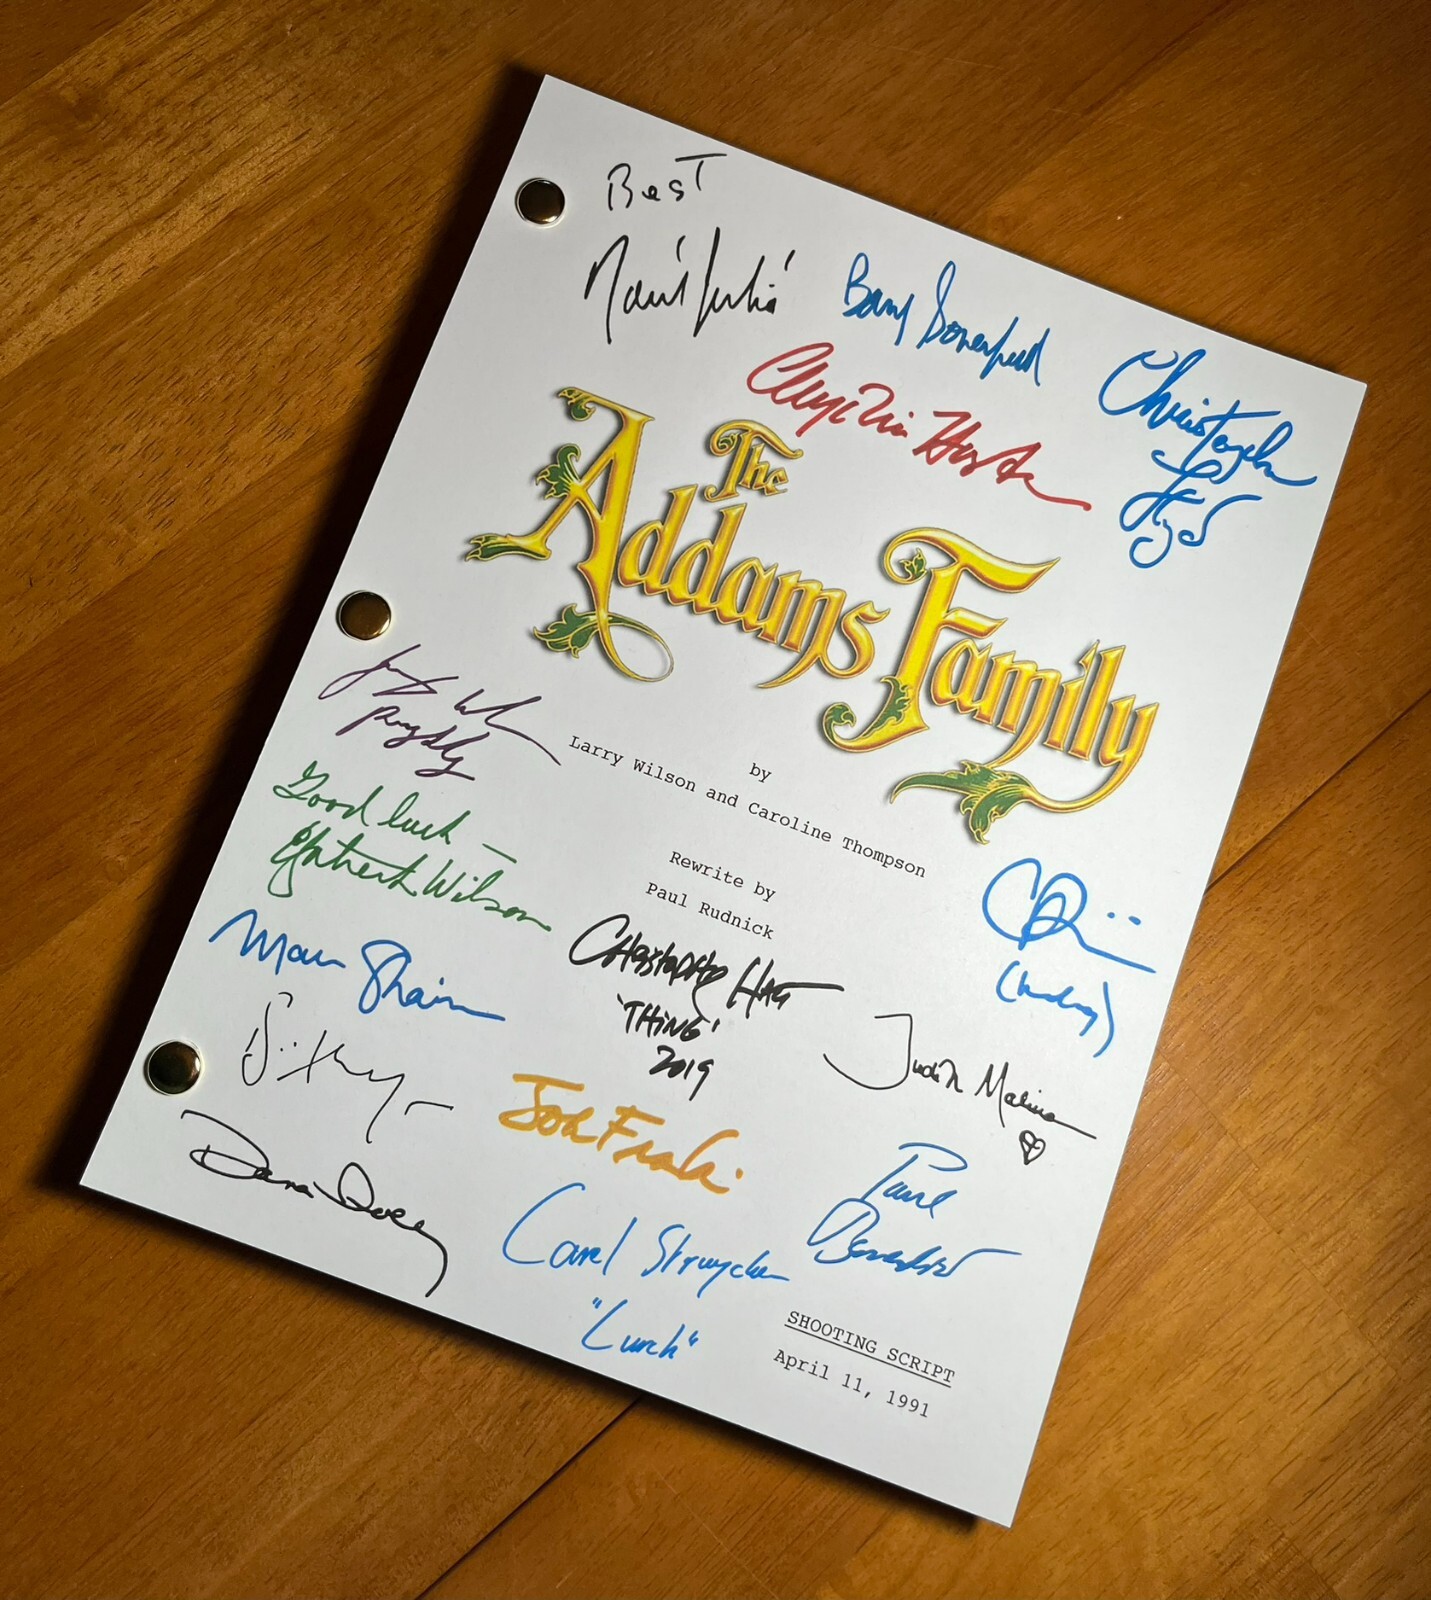 Best
Raúl Juliá
Barry Sonnenfeld
Christopher
Lloyd
Anjelica Huston
The
Addams Family
by
Larry Wilson and Caroline Thompson
Rewrite by
Paul Rudnick
Pugsley
Good luck —
Elizabeth Wilson
Marc Shaiman
Christopher Hart
'THING'
2019
(Wednesday)
Judith Malina
Dana Ivey
Carel Struycken
"Lurch"
Paul
Benedict
SHOOTING SCRIPT
April 11, 1991